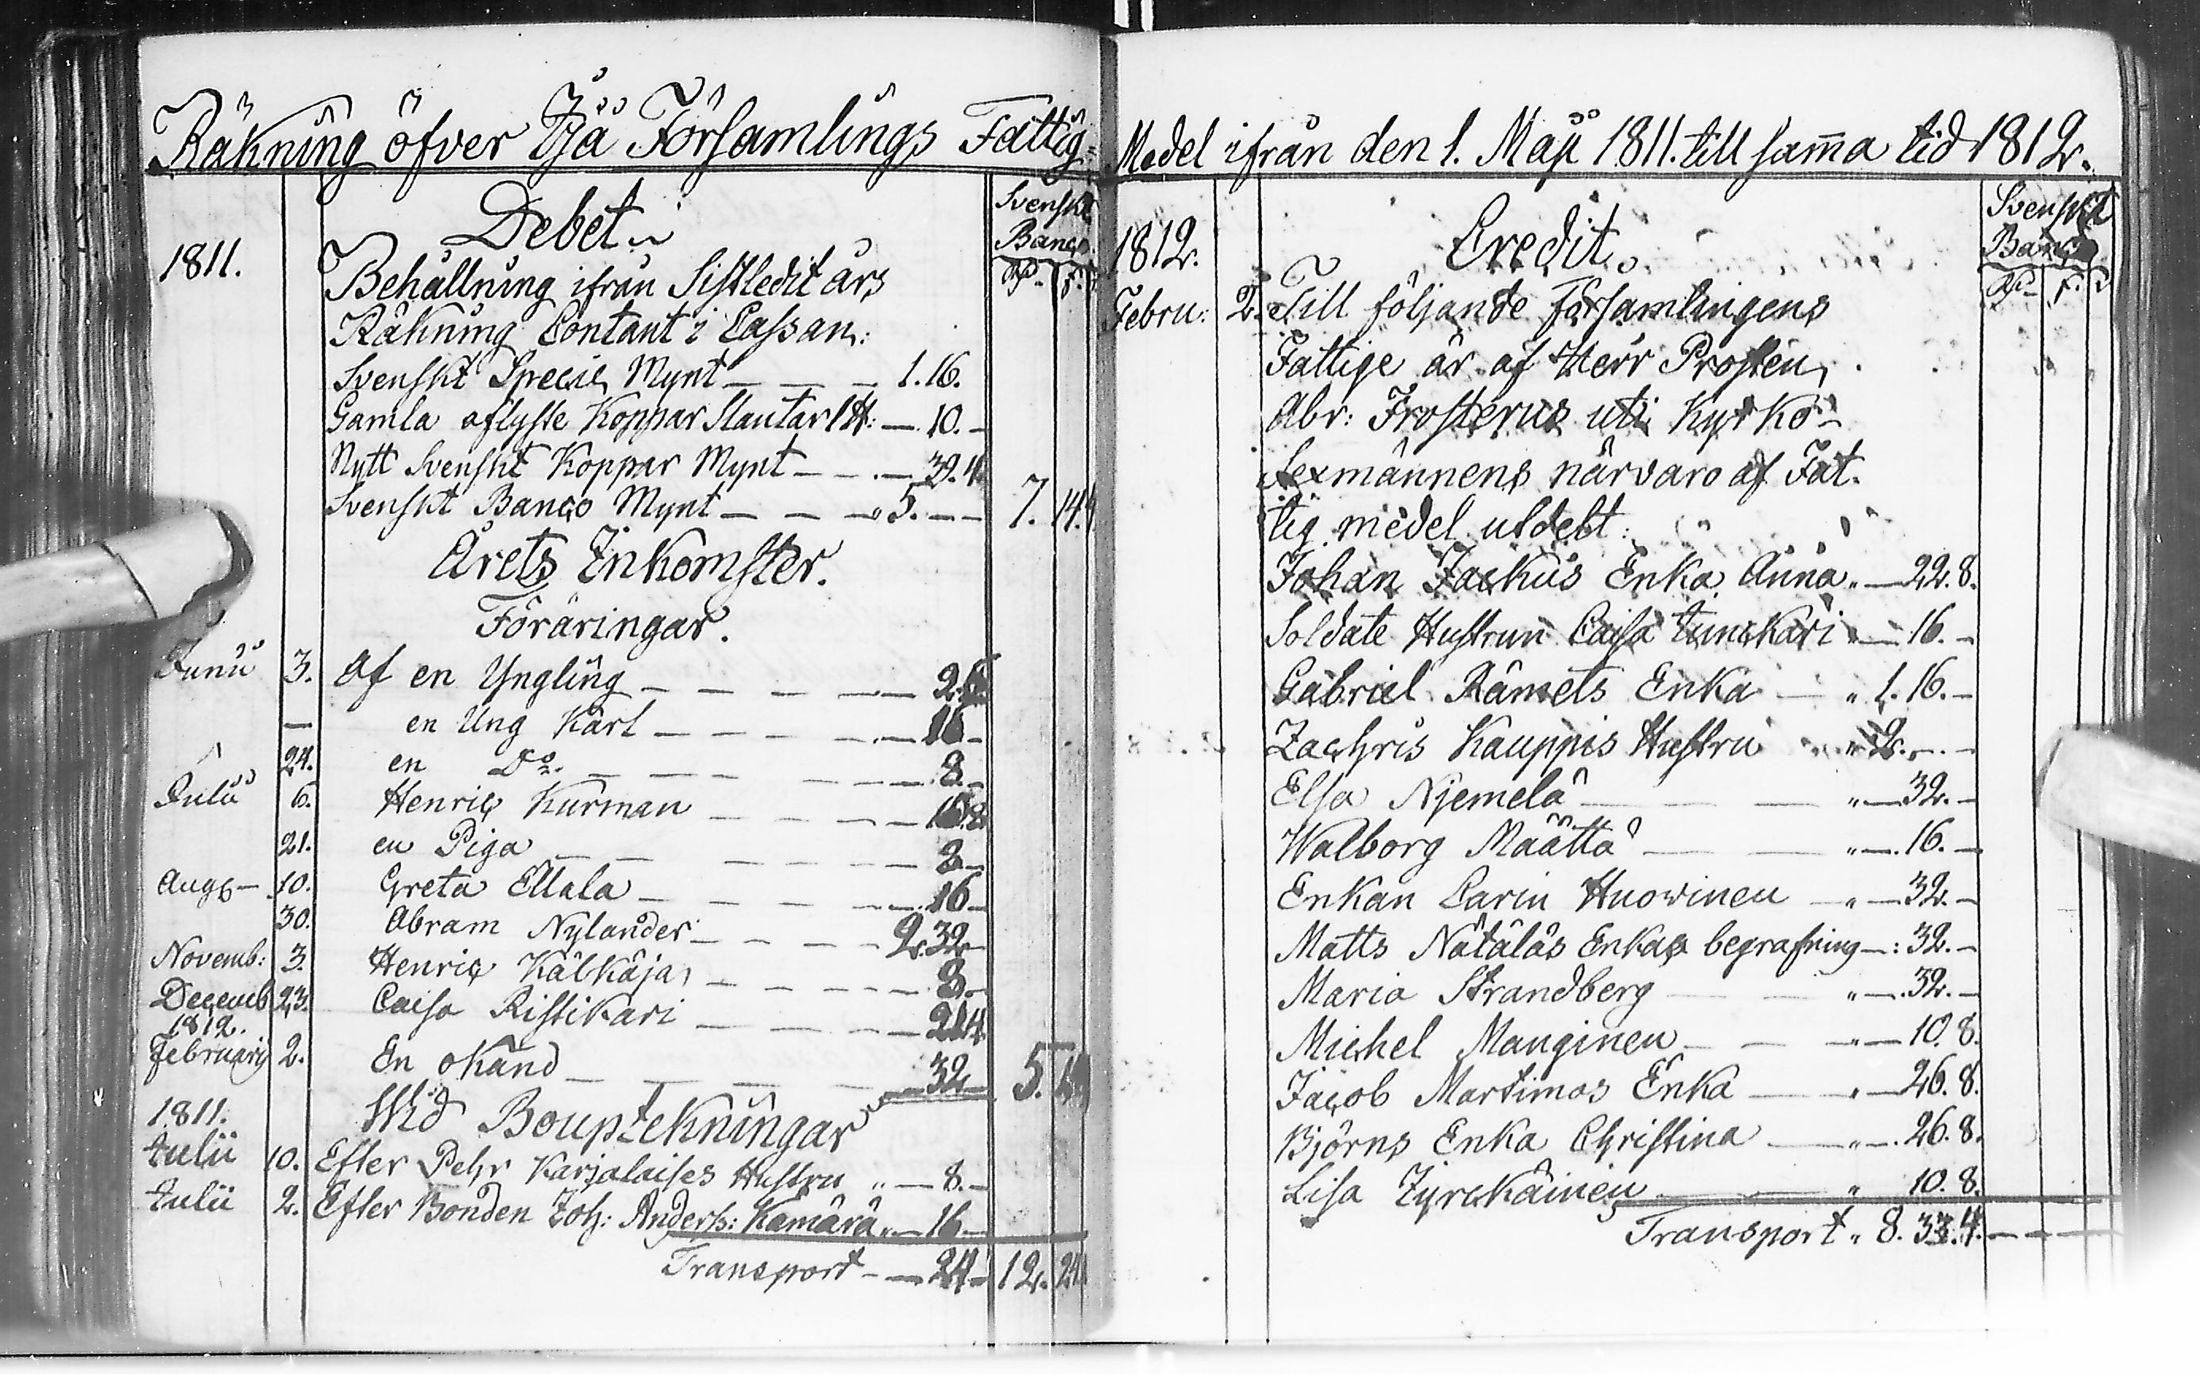 Räkning öfver Ijå Församlings Fattig=
Debet.
Svenskt
Banco.
1811. Behållning ifrån Sistledit års
Räkning Contant i Cassan:
Svenskt Specie Mynt — — — 1.16.
Gamla aflyste Koppar Slantar 1 st: — 10. –
Nytt Svenskt Koppar Mynt — — 32.4
Svenskt Banco Mynt — — — 5. — — 7. 14.4
Årets Inkomster.
Föräringar.
Junii 3. Af en Yngling — — — —
— en Ung Karl — — — — 16 –
24. en Do. — — — — 8. –
Julii 6. Henric Kurman — — — 16.8
21. en Piga — — — — 8 –
Aug. — 10. Greta Ellala — — — — 16 –
30. Abram Nylander — — — 2.32 –
Novemb: 3. Henric Kälkäjä — — — 8. –
Decemb 23. Caisa Ristikari — — —
1812.
February 2. En okänd — — — — 32 – 5.
Wid Boupteckningar
1811.
Julii 10. Efter Pehr Karjalaises Hustru „ — 8. –
Julii 2. Efter Bonden Joh: Anders: Kamärä „ — 16 –
Transport — — 24 – 12. 24
Medel ifrån den 1. Maji 1811. till sama tid 1812.
1812. Credit.
Svenskt
Banco
Febru: 2. Till följande Församlingens
Fattige är af Herr Prosten
Abr: Frosterus uti Kyrko-
Sexmännens närvaro af Fat-
tig medel utdelt:
Johan Jackus Enka Anna „ — 22.8.
Soldate Hustrun Caisa Junckari „ — 16. –
Gabriel Rämets Enka — „ 1. 16. –
Zachris Kauppis Hustru „ 2. – –
Elsa Njemelä — — „ — 32. –
Walborg Määttä — — „ — 16. –
Enkan Carin Huovinen — „ — 32. –
Matts Nätäläs Enkas begrafning — : 32. –
Maria Strandberg — — „ — 32. –
Michel Manginen — — „ — 10. 8.
Jacob Martimos Enka — „ — 26. 8.
Björns Enka Christina — „ — 26. 8.
Lisa Jyrckäinen — — „ 10. 8.
Transport „ 8. 33.4. — — —